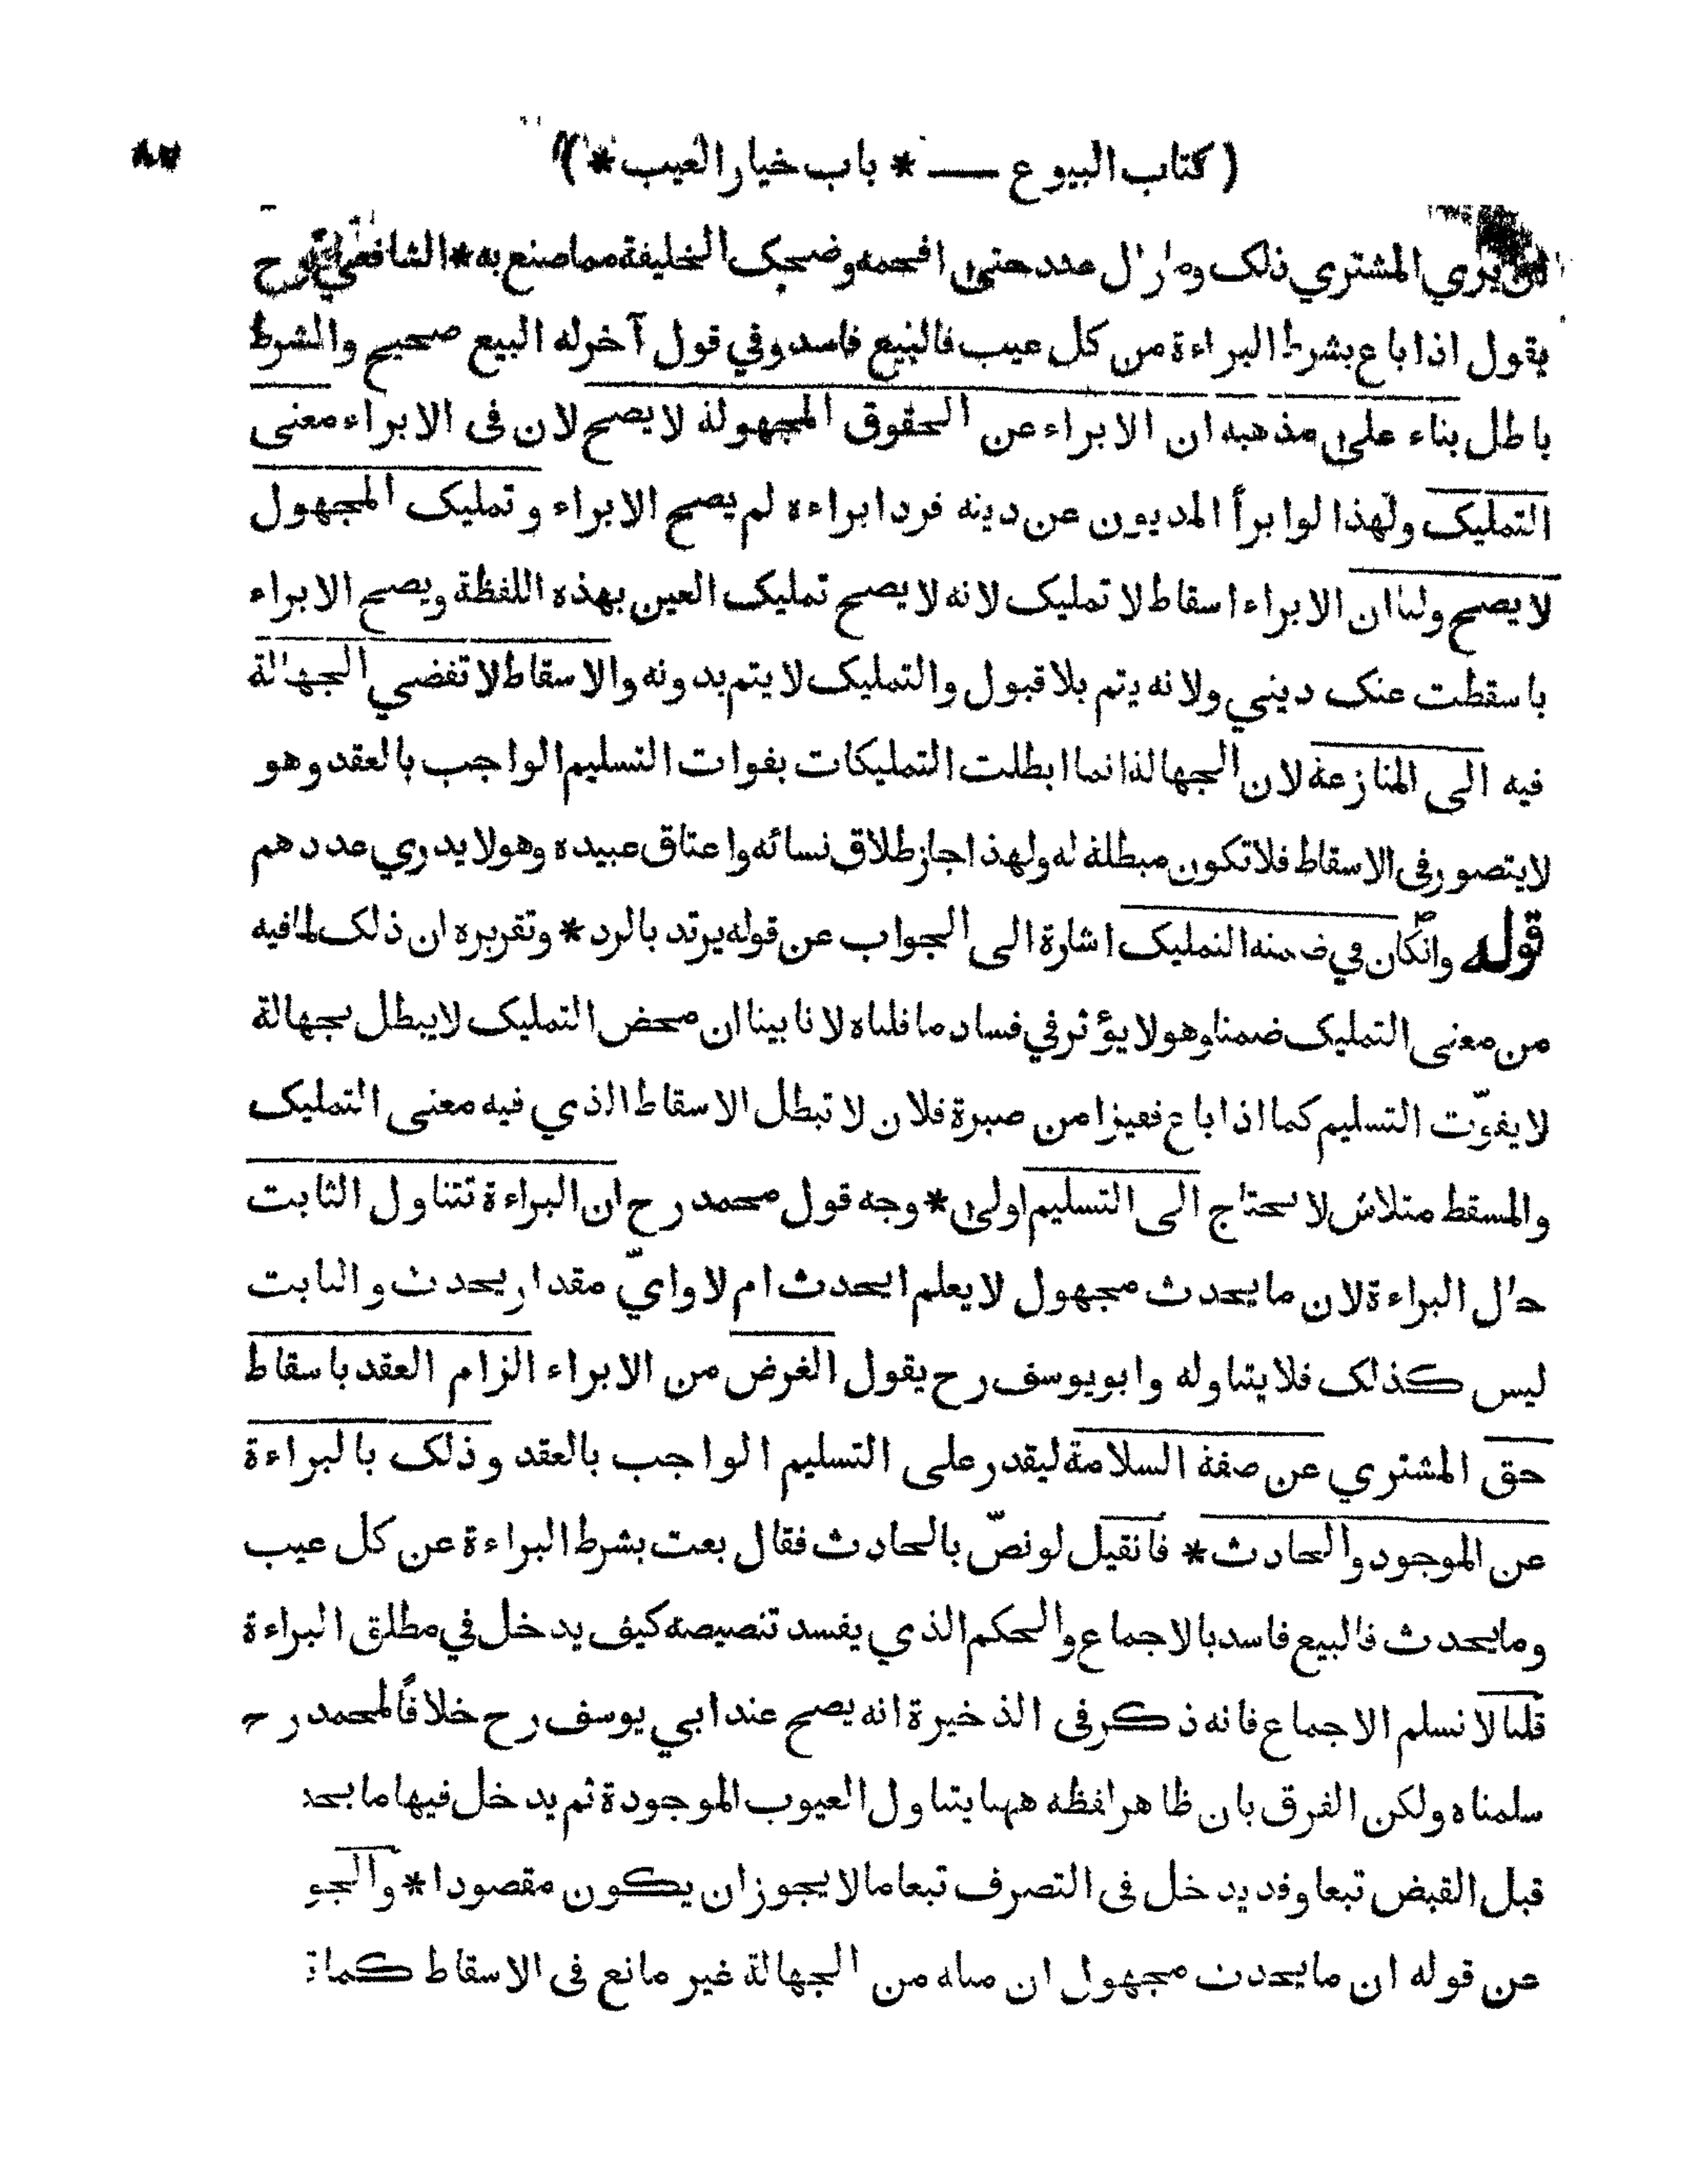 ( كتاب البيوع — * باب خيار العيب * )
٨٧
يري المشتري ذلك وما زال حتى افحمه وضحك الخليفة مما صنع به * الشافعي رح
يقول اذا باع بشرط البراءة من كل عيب فالبيع فاسد وفي قول آخر له البيع صحيح والشرط
باطل بناء على مذهبه ان الابراء عن الحقوق المجهولة لا يصح لان فى الابراء معنى
التمليك ولهذا لو ابرأ المديون عن دينه فرد ابراءه لم يصح الابراء وتمليك المجهول
لا يصح ولنا ان الابراء اسقاط لا تمليك لانه لا يصح تمليك العين بهذه اللفظة ويصح الابراء
باسقطت عنك ديني ولانه يتم بلا قبول والتمليك لا يتم بدونه والاسقاط لا تفضي الجهالة
فيه الى المنازعة لان الجهالة انما ابطلت التمليكات بفوات التسليم الواجب بالعقد وهو
لا يتصور فى الاسقاط فلا تكون مبطلة له ولهذا جاز طلاق نسائه واعتاق عبيده وهو لا يدري عددهم
قوله وانكان في ضمنه التمليك اشارة الى الجواب عن قوله يرتد بالرد * وتقريره ان ذلك لما فيه
من معنى التمليك ضمنا وهو لا يؤثر في فساد ما قلناه لانا بينا ان محض التمليك لا يبطل بجهالة
لا يفوّت التسليم كما اذا باع قفيزا من صبرة فلان لا تبطل الاسقاط الذي فيه معنى التمليك
والمسقط متلاش لا يحتاج الى التسليم اولى * وجه قول محمد رح ان البراءة تتناول الثابت
حال البراءة لان ما يحدث مجهول لا يعلم ايحدث ام لا وايّ مقدار يحدث والثابت
ليس كذلك فلا يتناوله وابو يوسف رح يقول الغرض من الابراء الزام العقد باسقاط
حق المشتري عن صفة السلامة ليقدر على التسليم الواجب بالعقد وذلك بالبراءة
عن الموجود والحادث * فانقيل لو نصّ بالحادث فقال بعت بشرط البراءة عن كل عيب
وما يحدث فالبيع فاسد بالاجماع والحكم الذي يفسد تنصيصه كيف يدخل في مطلق البراءة
قلنا لا نسلم الاجماع فانه ذكر فى الذخيرة انه يصح عند ابي يوسف رح خلافًا لمحمد رح
سلمناه ولكن الفرق بان ظاهر لفظه ههنا يتناول العيوب الموجودة ثم يدخل فيها ما يحد
قبل القبض تبعا وقد يدخل فى التصرف تبعا ما لا يجوز ان يكون مقصودا * والجو
عن قوله ان ما يحدث مجهول ان مثله من الجهالة غير مانع فى الاسقاط كما